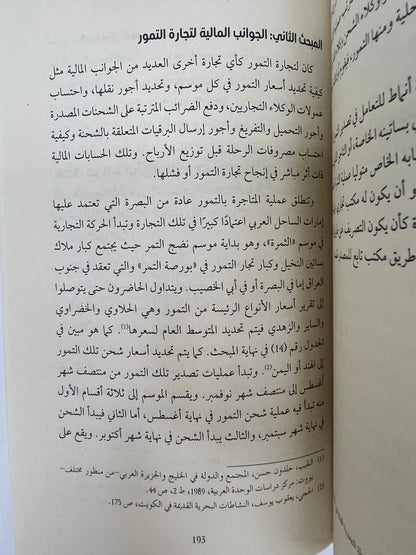 المبحث الثاني: الجوانب المالية لتجارة التمور
كان لتجارة التمور كأي تجارة أخرى العديد من الجوانب المالية مثل
كيفية تحديد أسعار التمور في كل موسم، وتحديد أجور نقلها، واحتساب
عمولات الوكلاء التجاريين، ودفع الضرائب المترتبة على الشحنات المصدرة
وأجور التحميل والتفريغ وأجور إرسال البرقيات المتعلقة بالشحنة وكيفية
احتساب مصروفات الرحلة قبل توزيع الأرباح. وتلك الحسابات المالية
ذات أثر مباشر في إنجاح تجارة التمور أو فشلها.
وتنطلق عملية المتاجرة بالتمور عادة من البصرة التي تعتمد عليها
إمارات الساحل العربي اعتمادًا كبيرًا في تلك التجارة وتبدأ الحركة التجارية
في موسم «الثمرة»، وهو بداية موسم نضج التمر حيث يجتمع كبار ملاك
بساتين النخيل وكبار تجار التمور في «بورصة التمر» والتي تعقد في جنوب
العراق إما في البصرة أو في أبي الخصيب. ويتداول الحاضرون حتى يتوصلوا
إلى تقرير أسعار الأنواع الرئيسة من التمور وهي الحلاوي والخضراوي
والساير والزهدي فيتم تحديد المتوسط العام لسعرها(1). كما هو مبين في
الجدول رقم (14) في نهاية المبحث. كما يتم تحديد أسعار شحن تلك التمور
إلى الهند أو اليمن(2). وتبدأ عمليات تصدير تلك التمور من منتصف شهر
أغسطس إلى منتصف شهر نوفمبر. ويقسم الموسم إلى ثلاثة أقسام الأول
منه تبدأ فيه عملية شحن التمور في نهاية أغسطس، أما الثاني فيبدأ الشحن
في نهاية شهر سبتمبر، والثالث يبدأ الشحن في نهاية شهر أكتوبر. ويقع على
(1) النقيب، خلدون حسن، المجتمع والدولة في الخليج والجزيرة العربية-من منظور مختلف-
بيروت: مركز دراسات الوحدة العربية، 1989، ط 2، ص 44.
(2) الحجي، يعقوب يوسف، النشاطات البحرية القديمة في الكويت، ص 175.
193